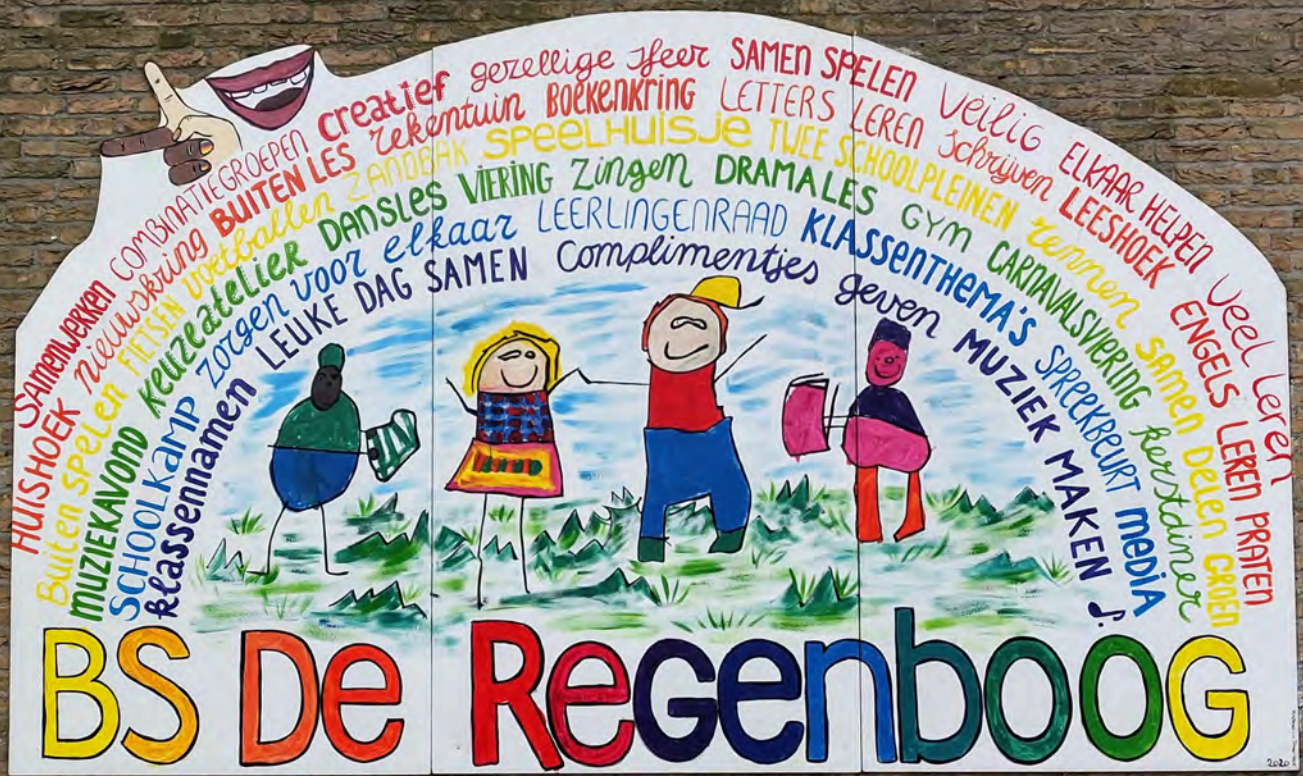 Samenwerken COMBINATIEGROEPEN creatief gezellige sfeer SAMEN SPELEN veilig ELKAAR HELPEN veel leren
HUISHOEK nieuwskring BUITENLES rekentuin BOEKENKRING LETTERS LEREN schrijven LEESHOEK ENGELS LEREN PRATEN
Buiten spelen FIETSEN voetballen ZANDBAK SPEELHUISJE TWEE SCHOOLPLEINEN rennen SAMEN DELEN GROEN
MUZIEKAVOND keuzeatelier DANSLES VIERING Zingen DRAMALES GYM CARNAVALSVIERING kerstdiner
SCHOOLKAMP zorgen voor elkaar LEERLINGENRAAD KLASSENTHEMA'S SPREEKBEURT MEDIA
klassennamen LEUKE DAG SAMEN Complimentjes geven MUZIEK MAKEN
BS De Regenboog
2020